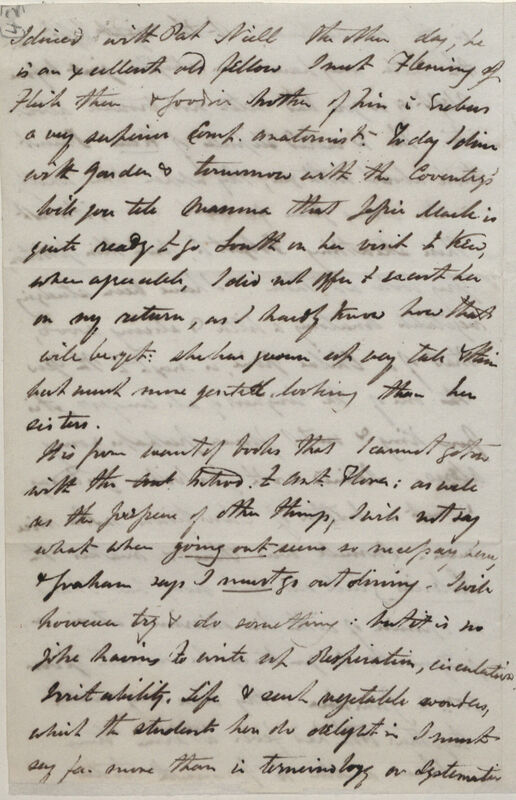 (42)
I dined with Pat Neill the other day, he
is an excellent old fellow I met Fleming of
Flisk there & Goodsir brother of him in Erebus
a very superior Comp. anatomist. To day I dine
with Gordon & tomorrow with the Coventry's
will you tell Mamma that Jessie Mack is
quite ready to go South on her visit to Kew,
when agreeable, I did not offer to escort her
on my return, as I hardly know how that
will be yet: she has grown up very tall & thin
but much more genteel looking than her
sisters.
It is from want of books that I cannot get on
with the Introd. to Ant. Flora: as well
as the pressure of other things, I will not say
what when going out seems so necessary here,
& Graham says I must go out dining. I will
however try & do something: but it is no
joke having to write up Respiration, circulation
Irritability, Life & such vegetable wonders,
which the students here do delight in I must
say far more than in terminology or Systematic